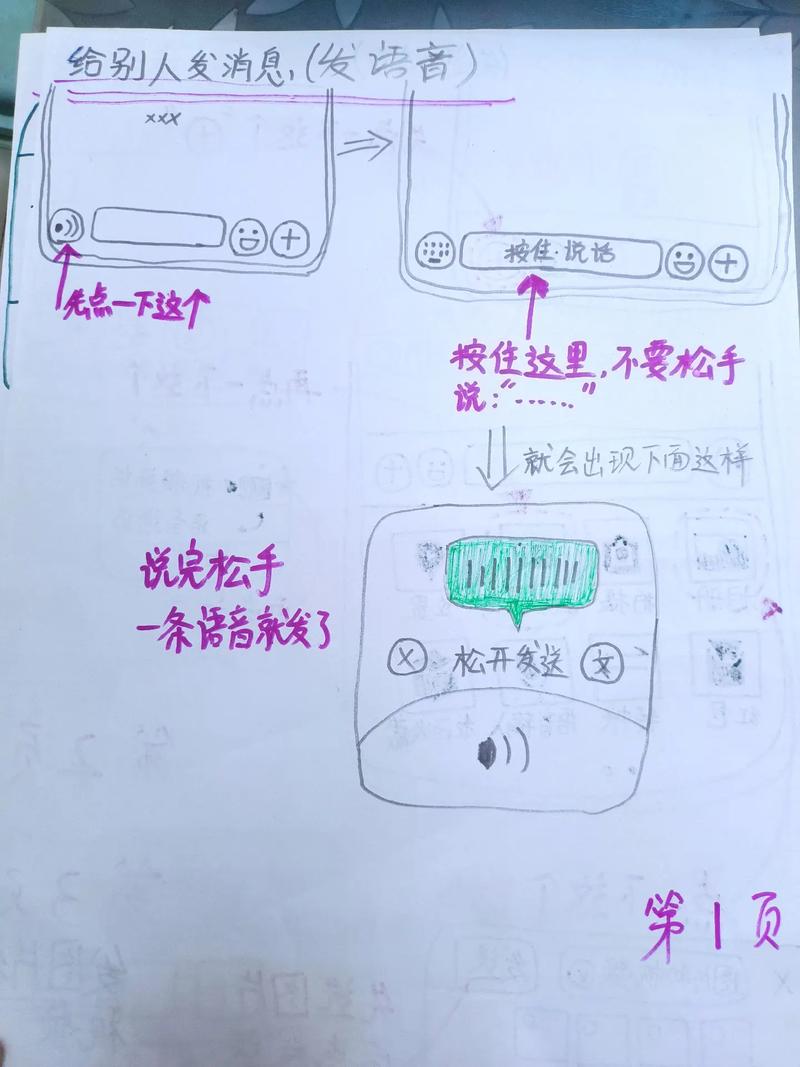 给别人发消息,(发语音)
xxx
先点一下这个
按住·说话
按住这里,不要松手
说:“……”
就会出现下面这样
说完松手
一条语音就发了
X 松开发送 文
第1页